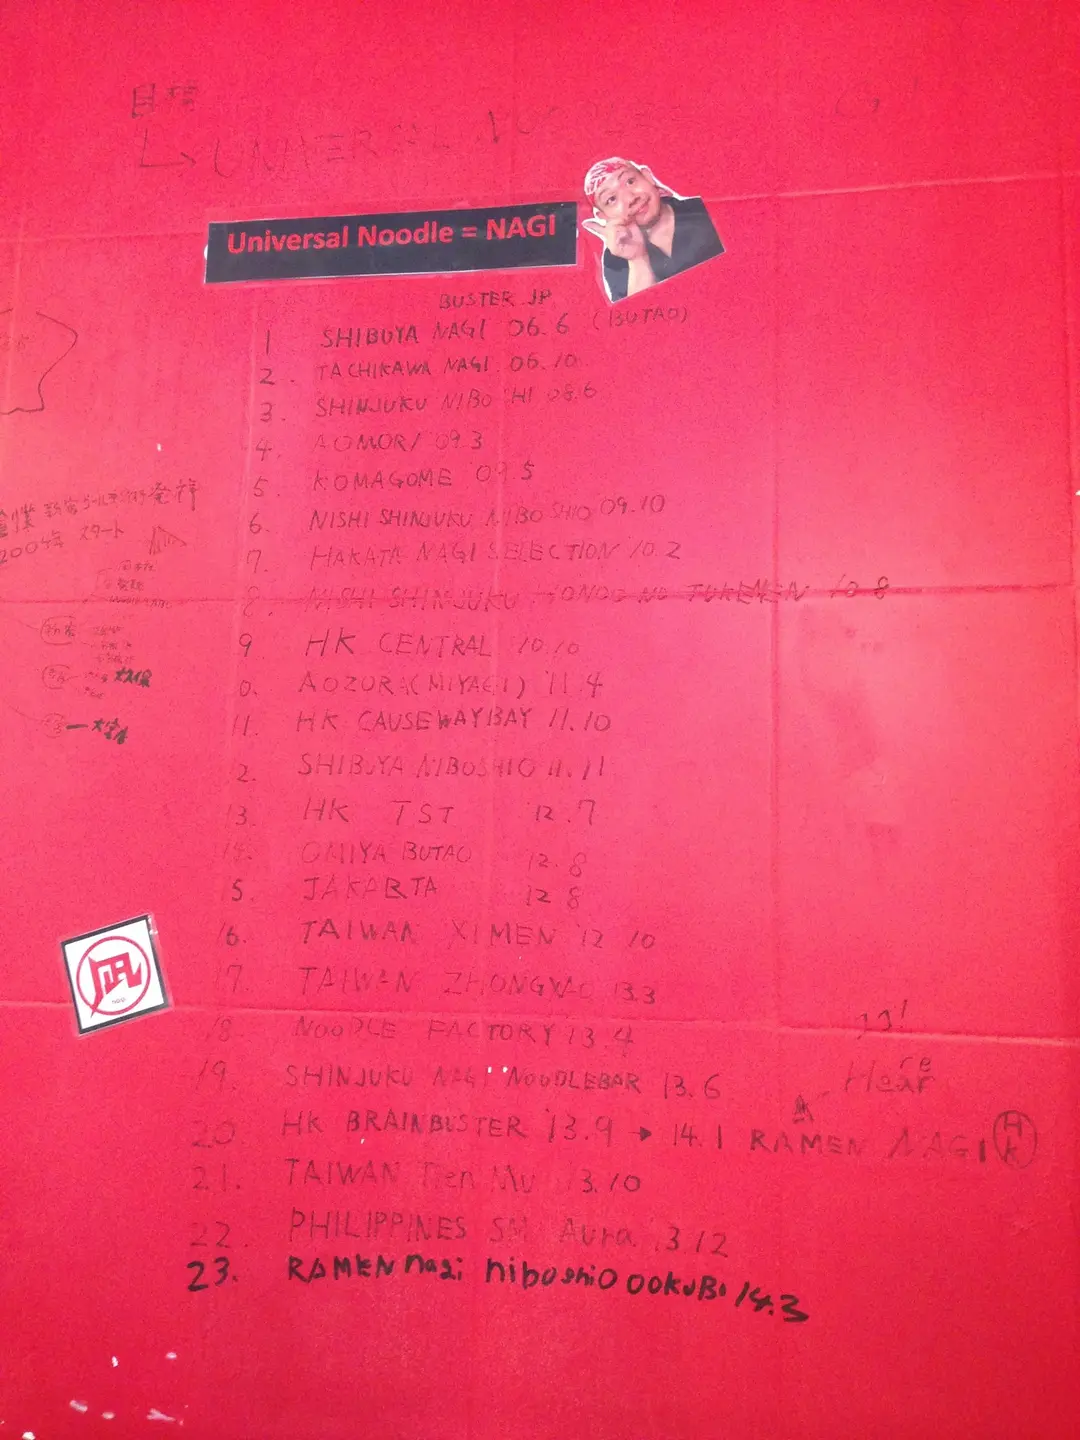 目標
UNIVERSAL NOODLE
Universal Noodle = NAGI
BUSTER JP
1 SHIBUYA NAGI 06.6 (BUTAO)
2. TACHIKAWA NAGI 06.10
3. SHINJUKU NIBOSHI 08.6
4. AOMORI 09.3
5. KOMAGOME 09.5
6. NISHI SHINJUKU NIBOSHIO 09.10
7. HAKATA NAGI SELECTION 10.2
8. NISHI SHINJUKU 10 8
9 HK CENTRAL 10.10
0. AOZORA (MIYAGI) '11.4
11. HK CAUSEWAYBAY 11.10
2. SHIBUYA NIBOSHIO 11.11
13. HK TST 12.7
14. OMIYA BUTAO 12.8
5. JAKARTA 12 8
16. TAIWAN XIMEN '12 10
17. TAIWAN 13.3
18 NOODLE FACTORY 13.4
19. SHINJUKU NAGI NOODLEBAR 13.6
20. HK BRAINBUSTER '13.9 → 14.1 RAMEN NAGI HK
ココ!
Heare
21. TAIWAN Tien Mu 13.10
22. PHILIPPINES SM Aura 13 12
23. RAMEN nagi niboshio ooKuBo 14.3
新宿ゴールデン街 発祥
2004年 スタート
大久保
大宮
凪